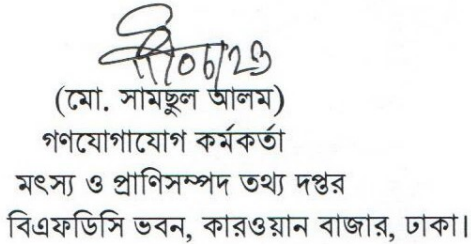 (মো. সামছুল আলম)
গণযোগাযোগ কর্মকর্তা
মৎস্য ও প্রাণিসম্পদ তথ্য দপ্তর
বিএফডিসি ভবন, কারওয়ান বাজার, ঢাকা।